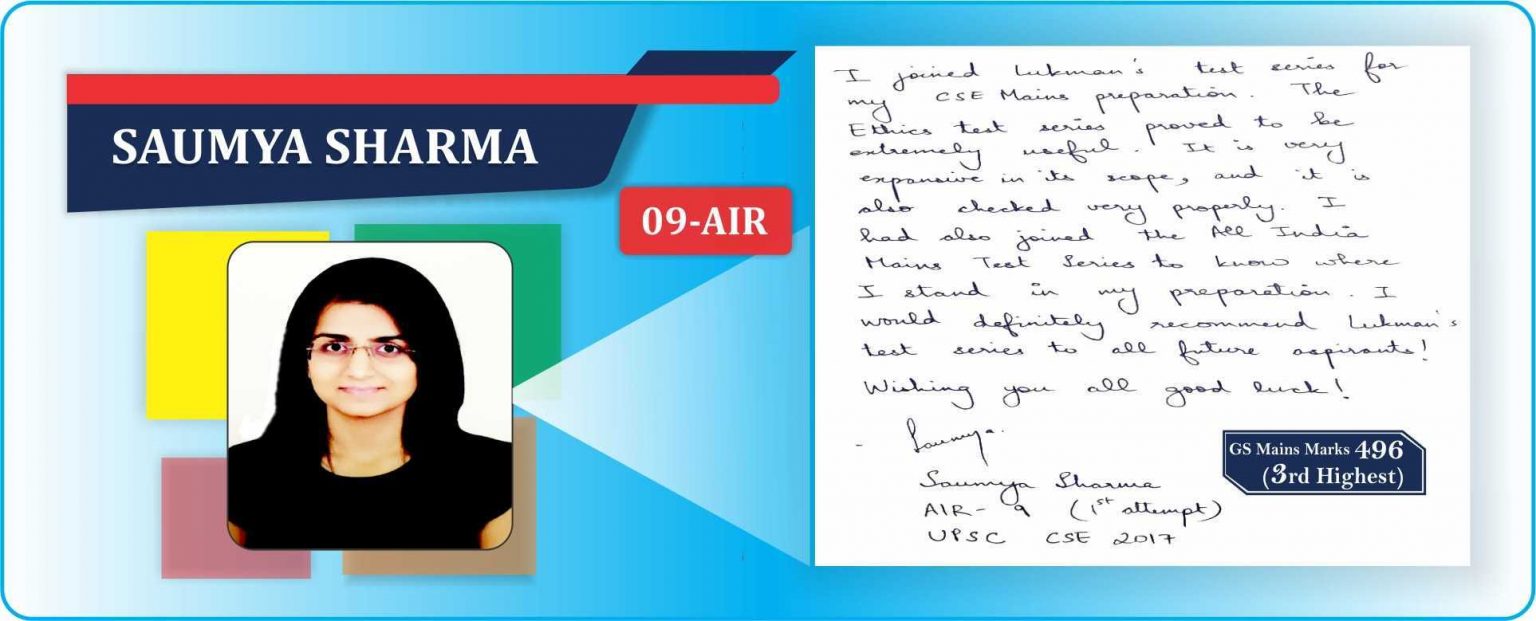 SAUMYA SHARMA
09-AIR
I joined Lukman's test series for
my CSE Mains preparation. The
Ethics test series proved to be
extremely useful. It is very
expansive in its scope, and it is
also checked very properly. I
had also joined the All India
Mains Test Series to know where
I stand in my preparation. I
would definitely recommend Lukman's
test series to all future aspirants!
Wishing you all good luck!
- Saumya.
GS Mains Marks 496
(3rd Highest)
Saumya Sharma
AIR- 9 (1st attempt)
UPSC CSE 2017